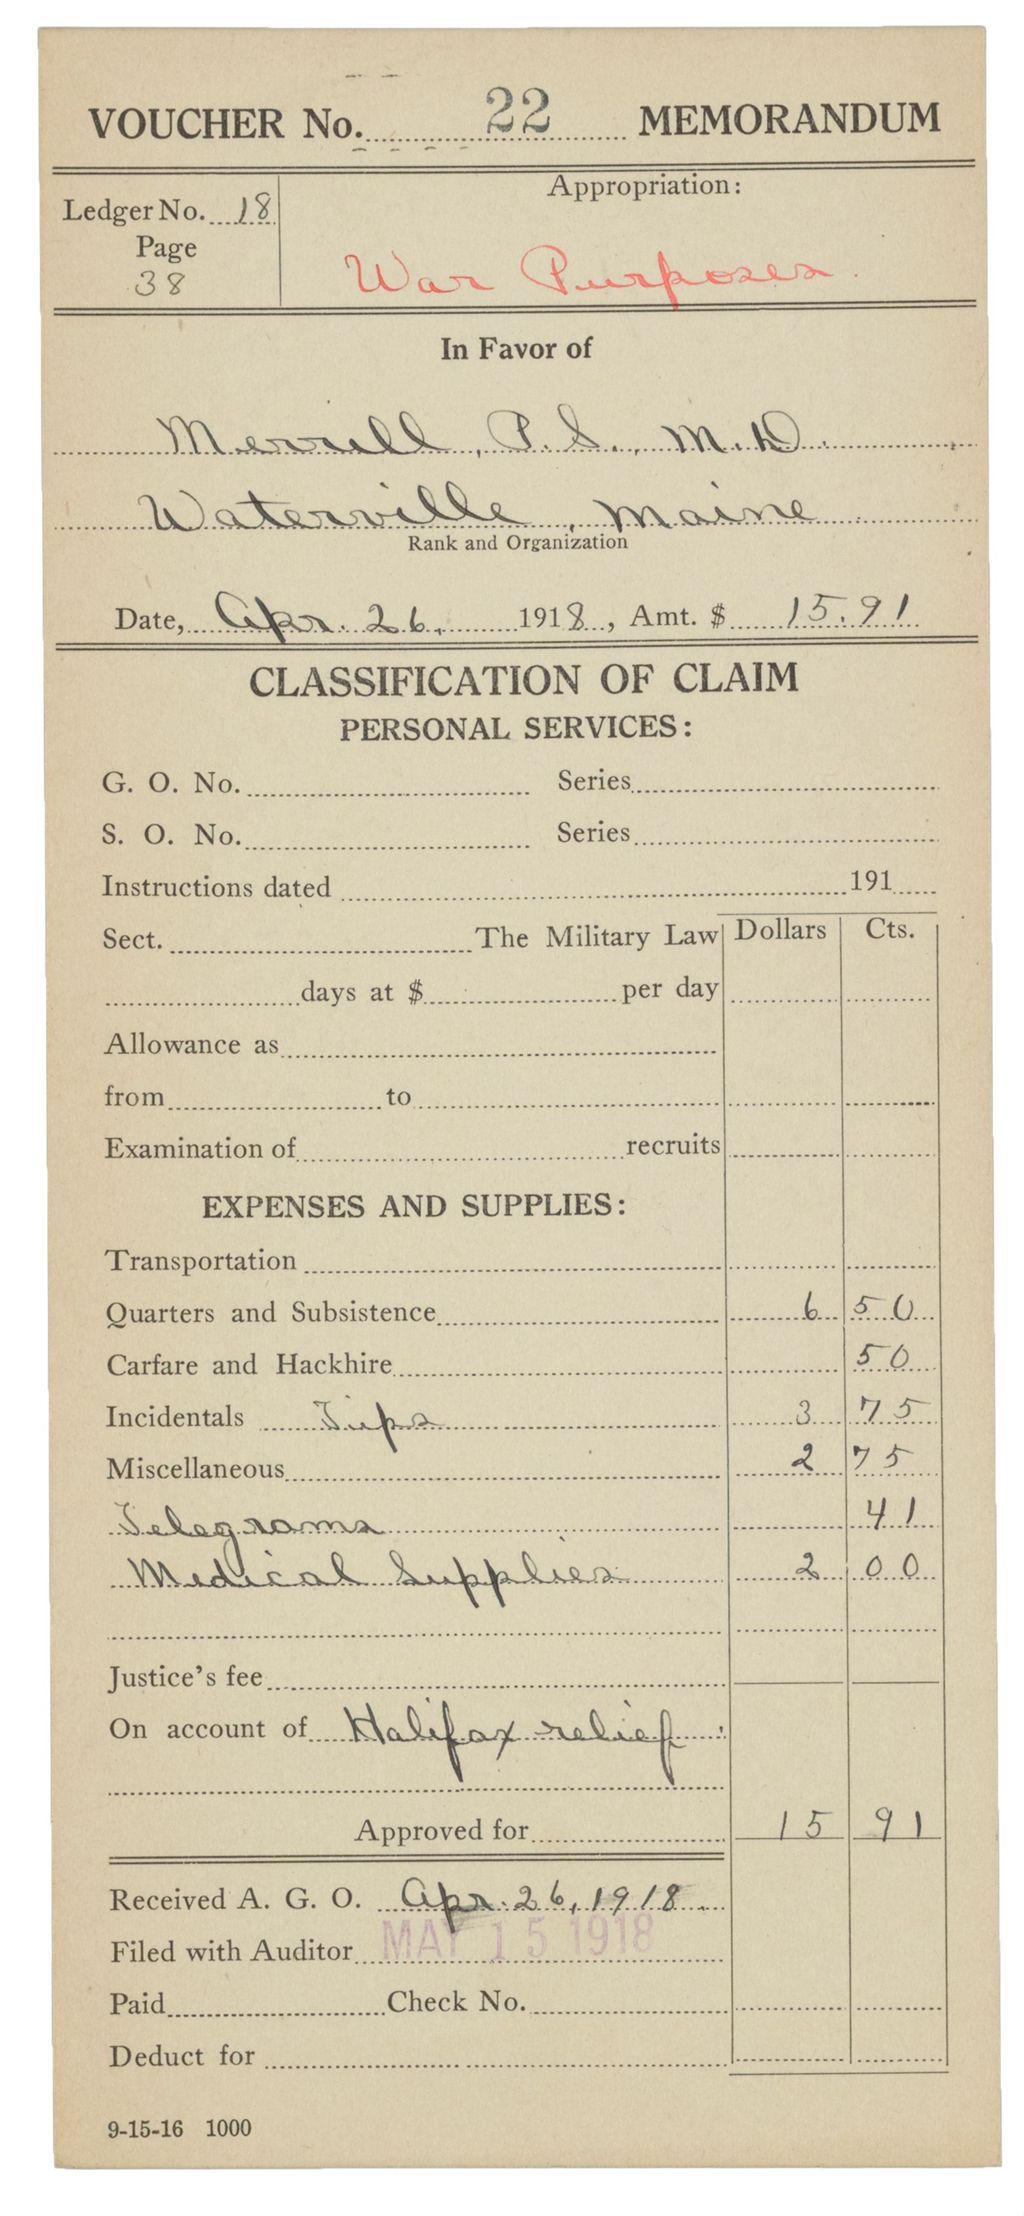 VOUCHER No. 22 MEMORANDUM
Ledger No. 18
Page
38
Appropriation:
War Purposes.
In Favor of
Merrill, P.S., M.D.
Waterville, Maine
Rank and Organization
Date, Apr. 26, 1918, Amt. $ 15.91
CLASSIFICATION OF CLAIM
PERSONAL SERVICES:
G. O. No. Series
S. O. No. Series
Instructions dated 191
Sect. The Military Law Dollars Cts.
days at $ per day
Allowance as
from to
Examination of recruits
EXPENSES AND SUPPLIES:
Transportation
Quarters and Subsistence 6 50
Carfare and Hackhire 50
Incidentals Tips 3 75
Miscellaneous 2 75
Telegrams 41
Medical Supplies 2 00
Justice's fee
On account of Halifax relief
Approved for 15 91
Received A. G. O. Apr. 26, 1918.
Filed with Auditor MAY 15 1918
Paid Check No.
Deduct for
9-15-16 1000